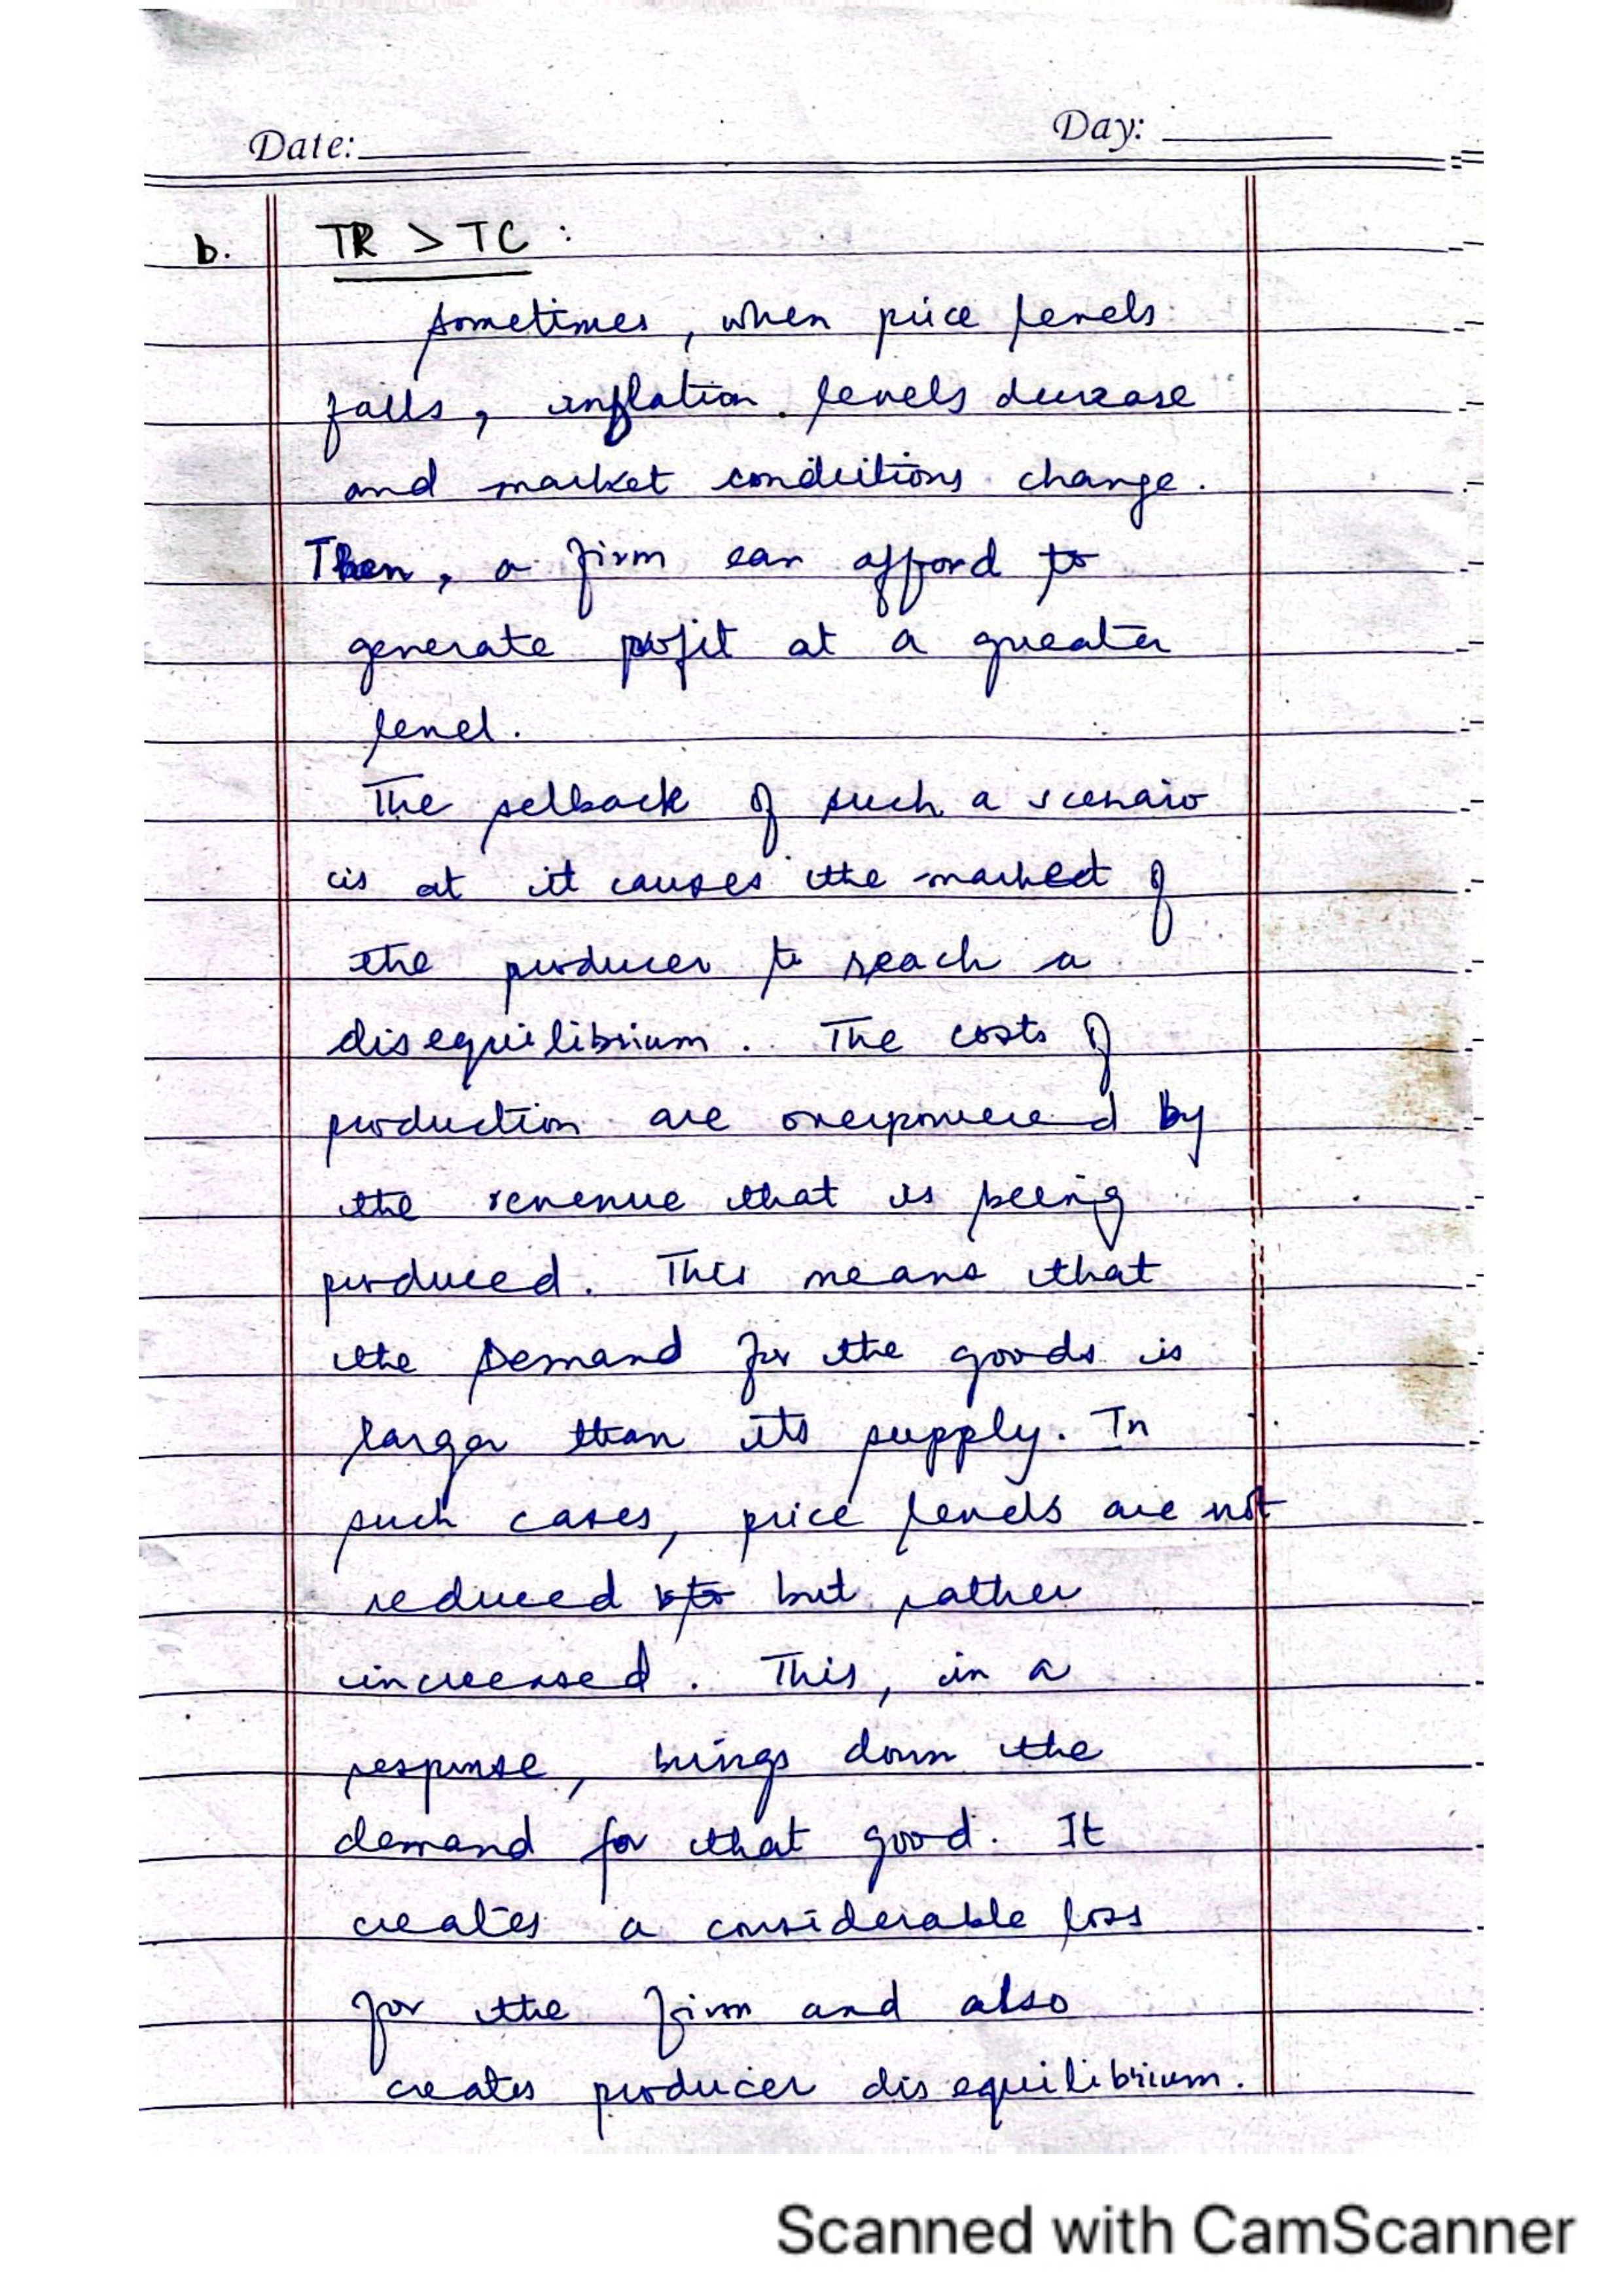 Date: Day:
b. TR > TC :
sometimes, when price levels
falls, inflation levels decrease
and market conditions change.
Then, a firm can afford to
generate profit at a greater
level.
The setback of such a scenario
is at it causes the market of
the producer to reach a
disequilibrium. The costs of
production are overpowered by
the revenue that is being
produced. This means that
the Demand for the goods is
larger than its supply. In
such cases, price levels are not
reduced but rather
increased. This, in a
response, brings down the
demand for that good. It
creates a considerable loss
for the firm and also
creates producer disequilibrium.
Scanned with CamScanner